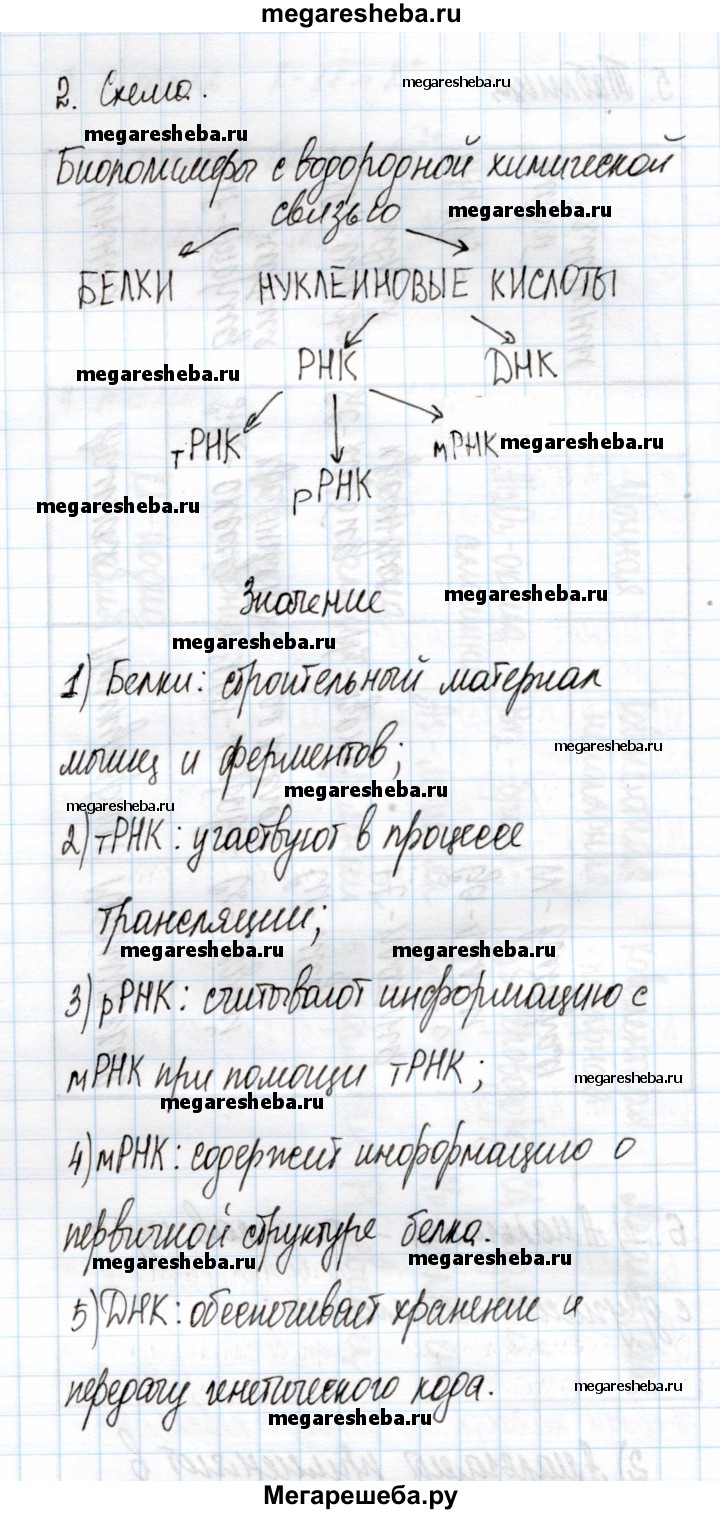 megaresheba.ru
2. Схема.
megaresheba.ru
megaresheba.ru
Биополимеры с водородной химической
связью
megaresheba.ru
БЕЛКИ НУКЛЕИНОВЫЕ КИСЛОТЫ
РНК ДНК
megaresheba.ru
тРНК мРНК
megaresheba.ru
рРНК
megaresheba.ru
Значение
megaresheba.ru
megaresheba.ru
1) Белки: строительный материал
мышц и ферментов;
megaresheba.ru
megaresheba.ru
megaresheba.ru
2) тРНК: участвуют в процессе
трансляции;
megaresheba.ru megaresheba.ru
3) рРНК: считывают информацию с
мРНК при помощи тРНК;
megaresheba.ru
megaresheba.ru
4) мРНК: содержит информацию о
первичной структуре белка.
megaresheba.ru megaresheba.ru
5) ДНК: обеспечивает хранение и
передачу генетического кода.
megaresheba.ru
megaresheba.ru
Мегарешеба.ру